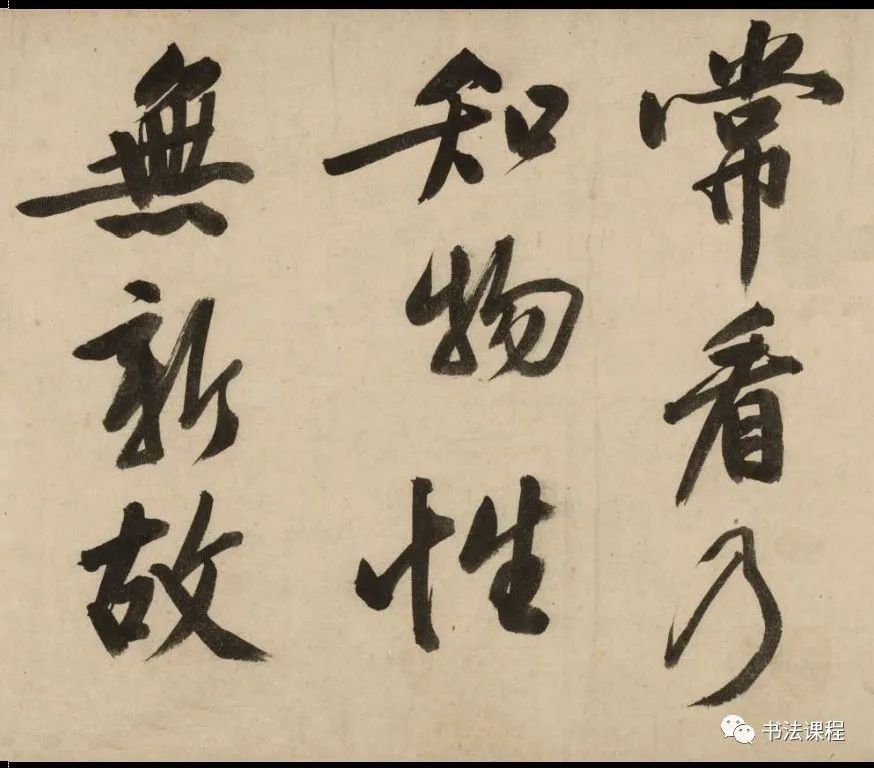 常看乃
知物性
無新故
书法课程